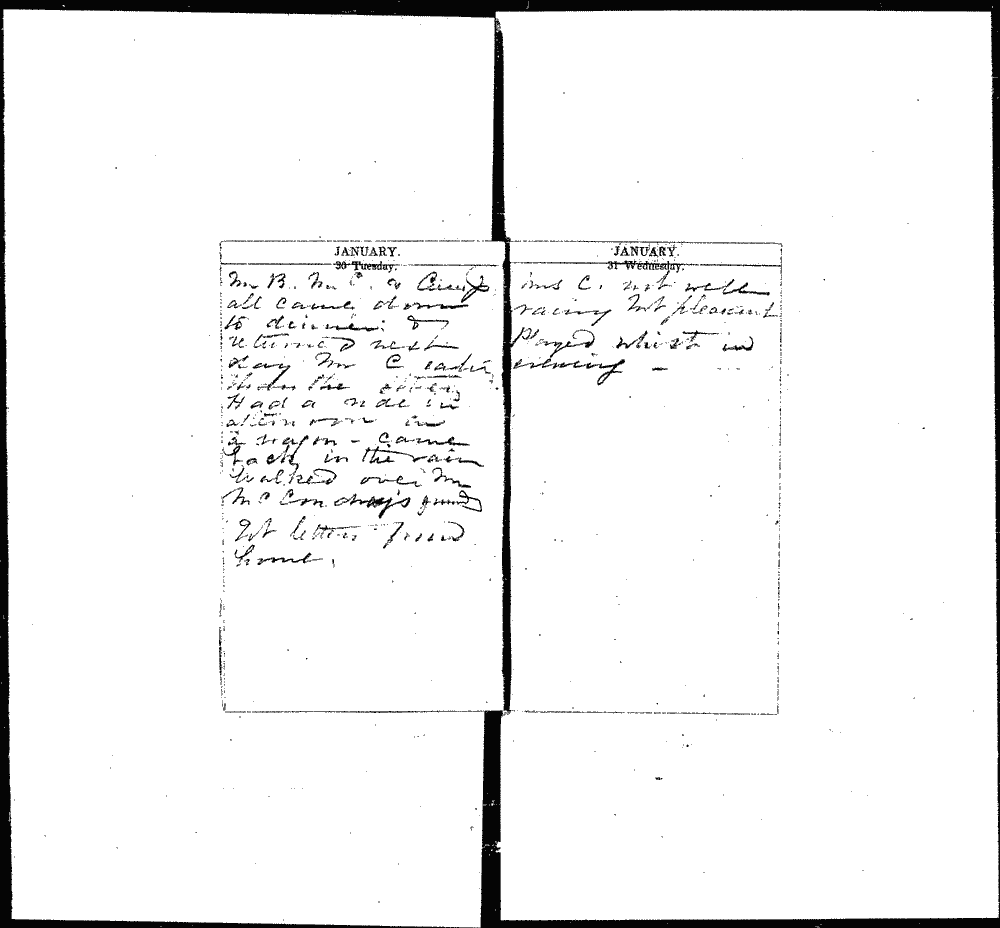 JANUARY.
30 Tuesday.
Mr B. Mr C. &
all came down
to dinner &
returned next
day Mr C earlier
than the other
Had a ride in
afternoon in
a wagon - came
back in the rain
Walked over Mr
McCondray's
Got letters from
home.
JANUARY.
31 Wednesday.
Mrs C. not well
rainy Not pleasant
Played whist in
evening -